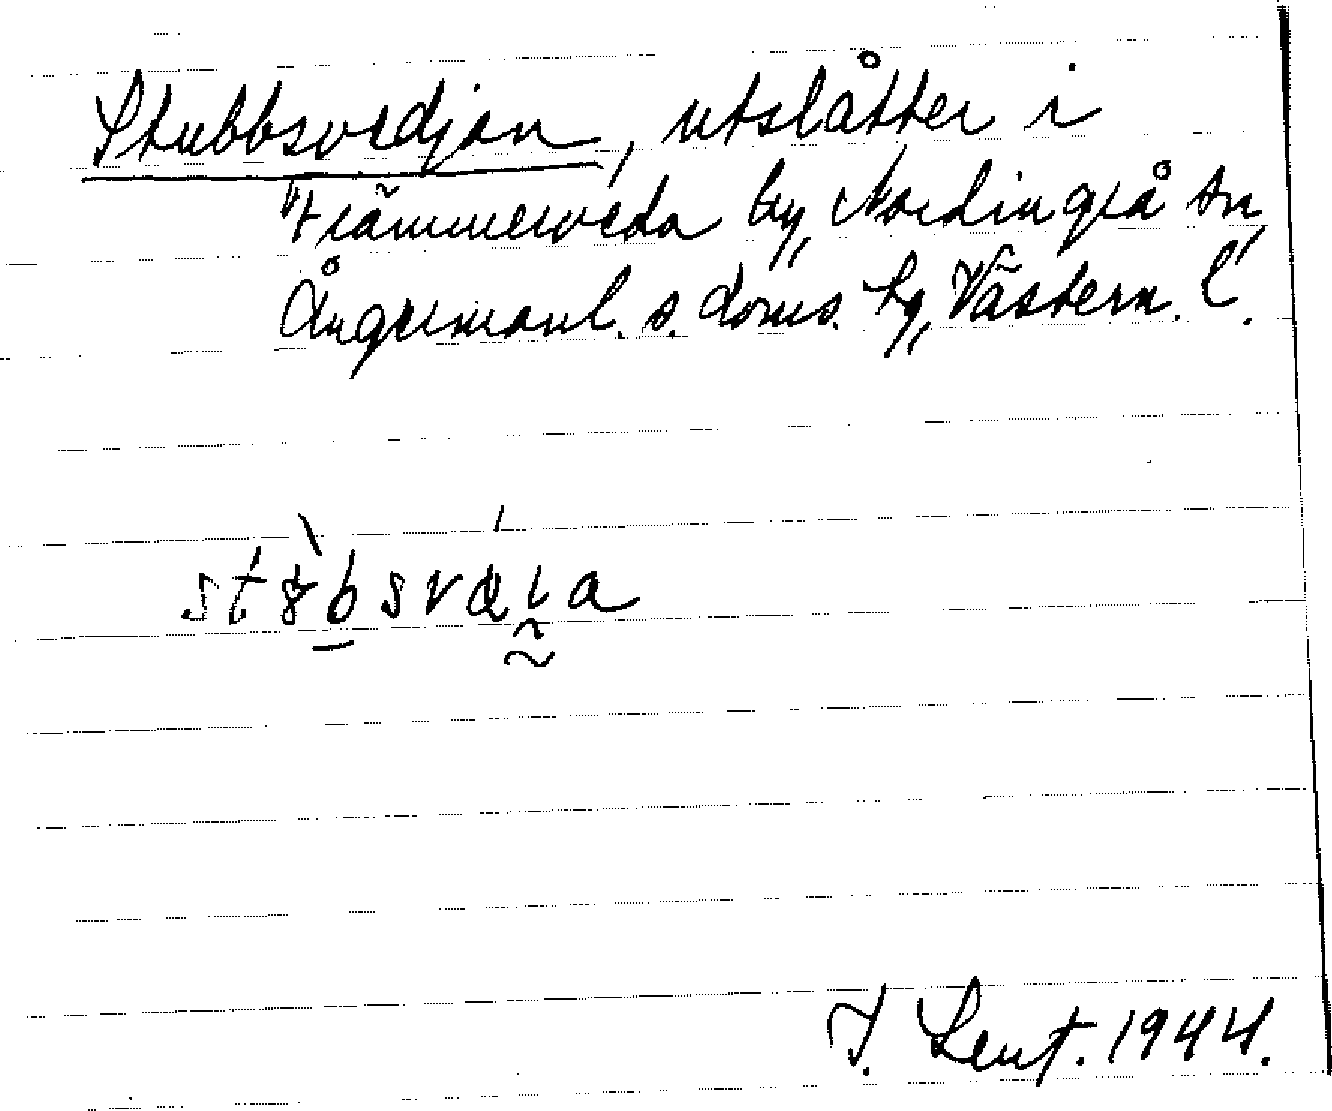 Stubbsvedjan, utslåtter i
Främmerveda by, Nordingrå sn,
Ångermanl. s. doms. tg, Västern. l.
J. 1944.